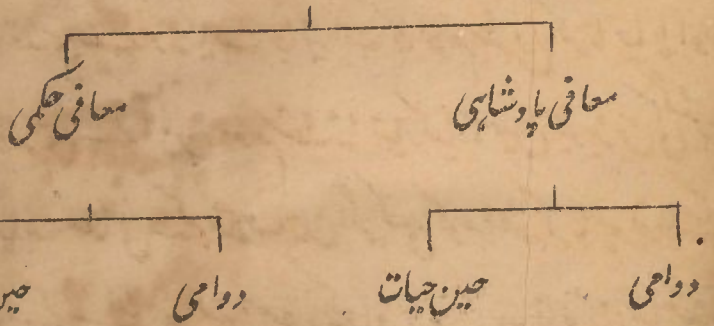 معافی پادشاہی معافی حکمی
دوامی حین حیات دوامی حین